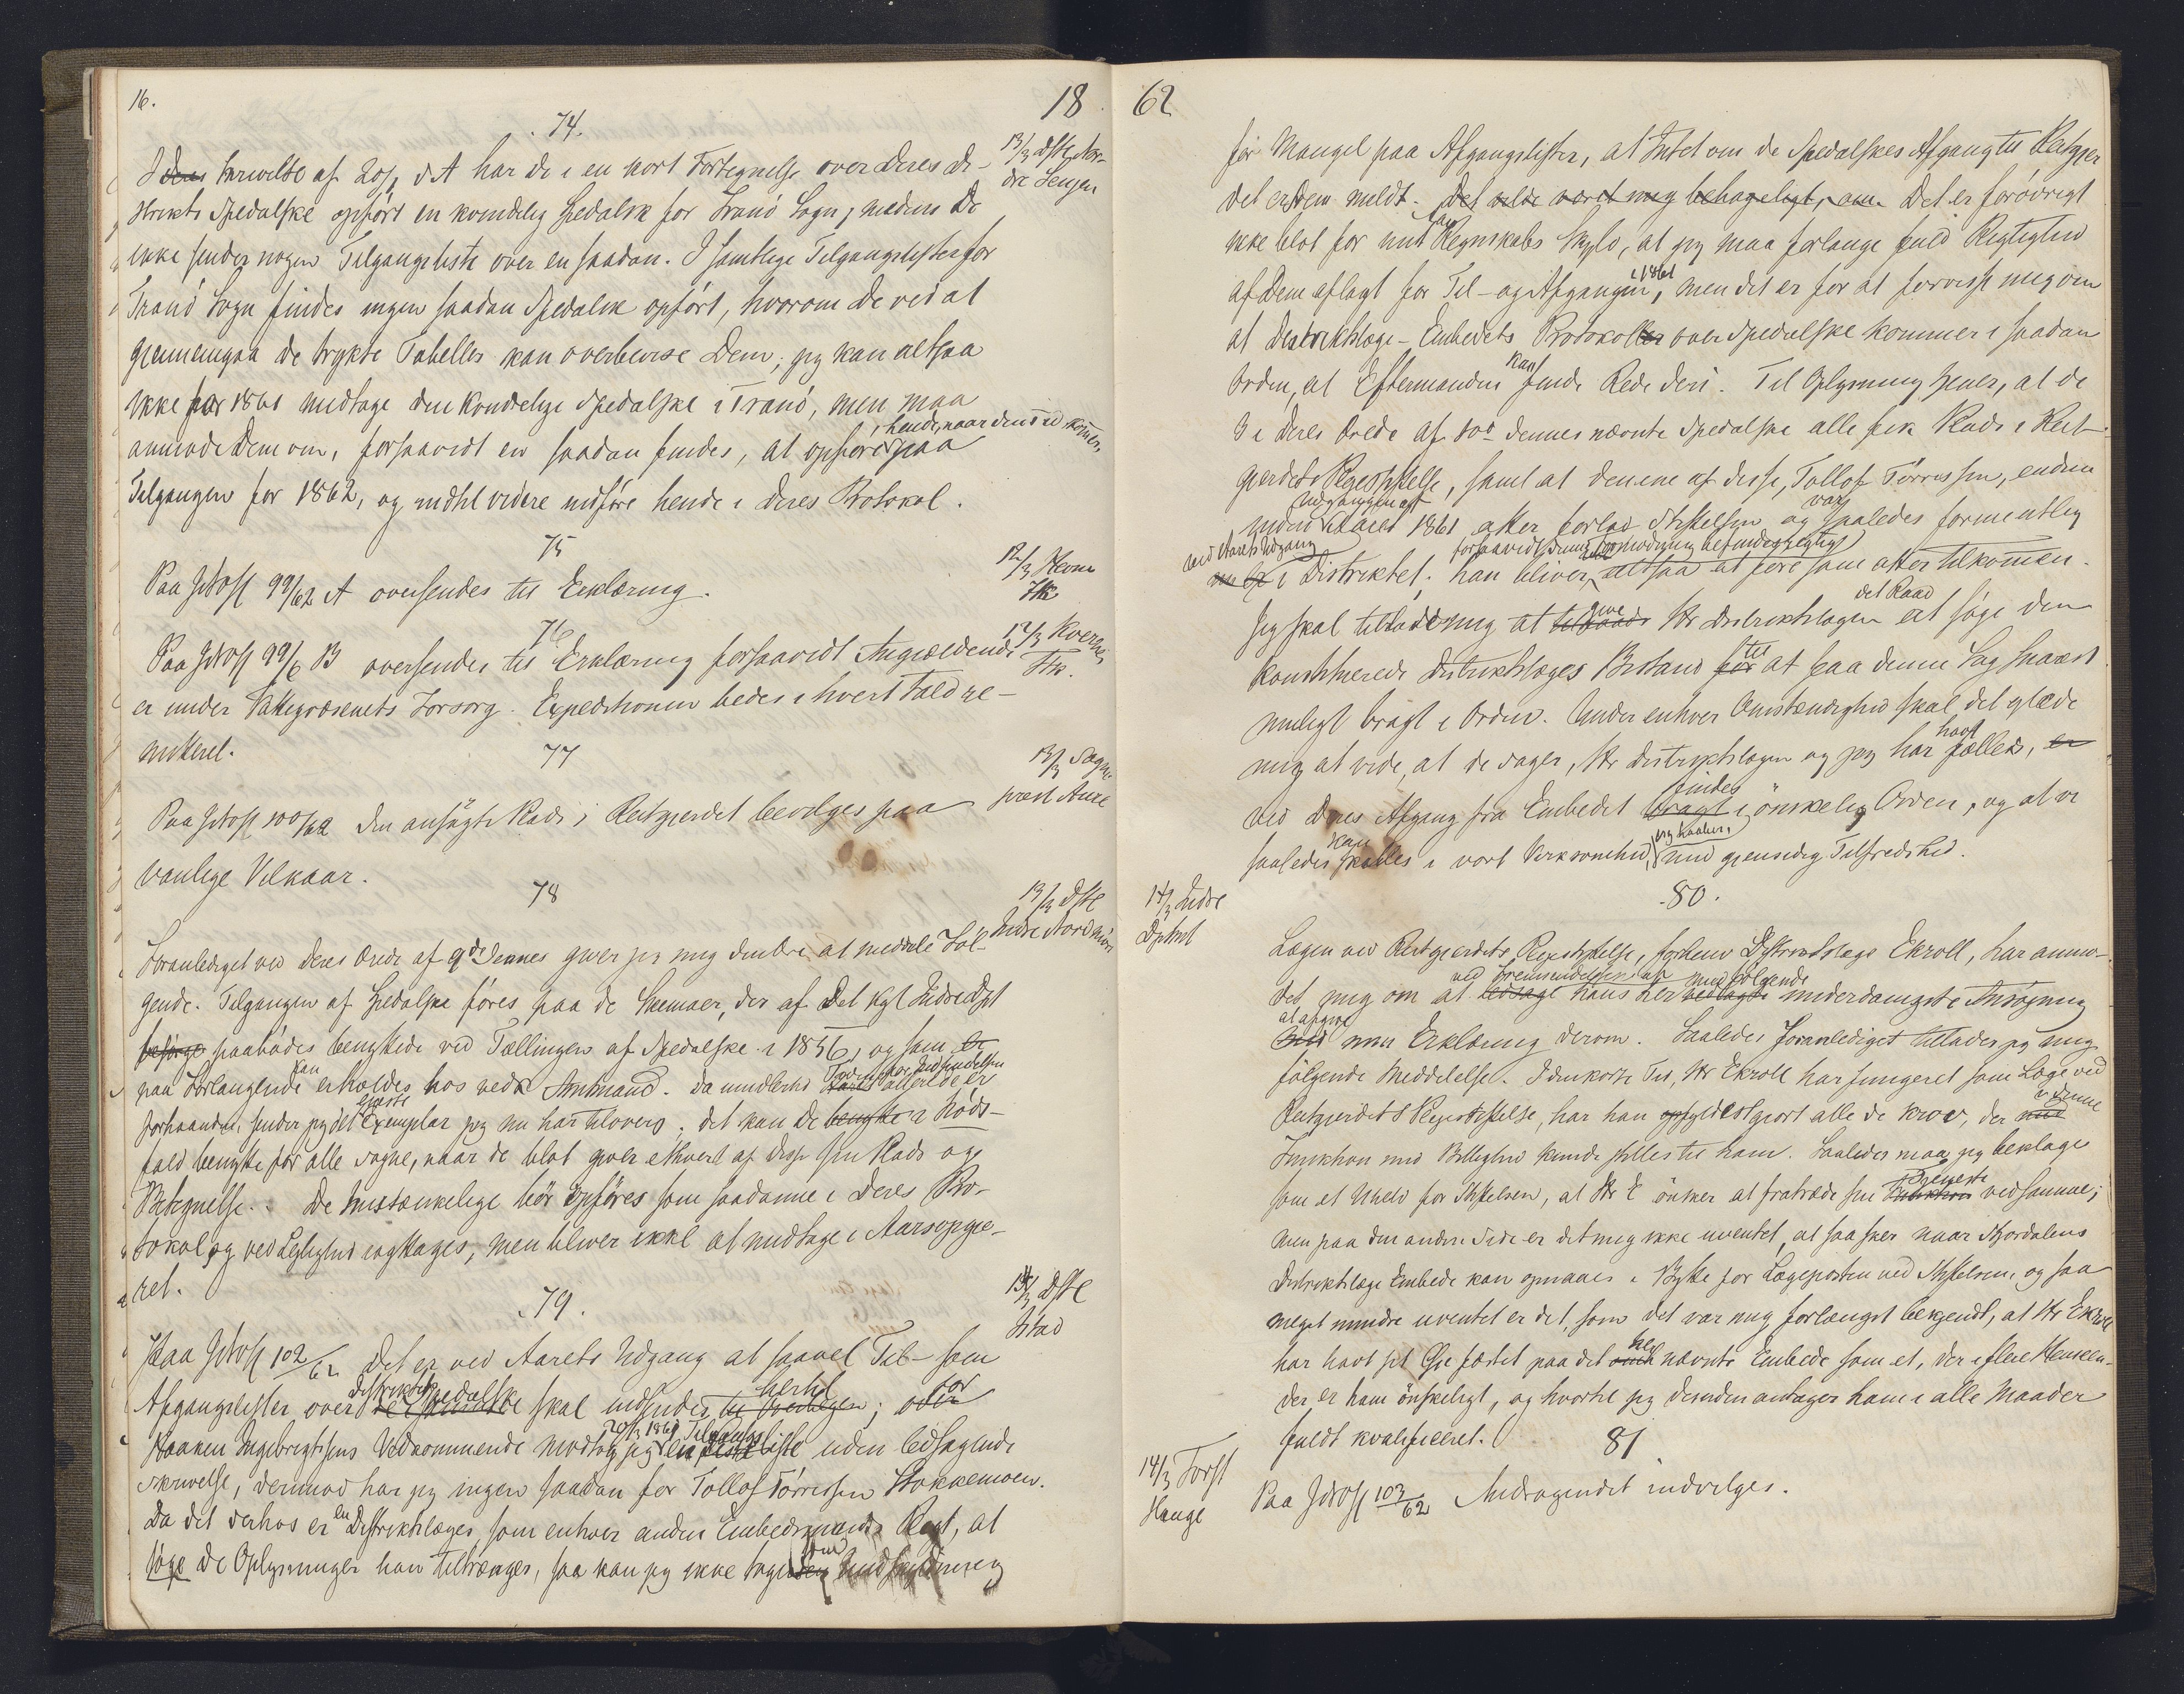 16.
18
74.
13/3 Dstl Nor-
dre Senjen
I Skrivelse af 20/2 d A har De i en kort Fortegnelse over Deres Di-
strikts Spedalske opført en kvindelig Spedalsk for Tranö Sogn, medens De
ikke sender nogen Tilgangsliste over en saadan. I samtlige Tilgangslister for
Tranö Sogn findes ingen saadan Spedalsk opfört, hvorom De ved at
gjennemgaa de trykte Tabeller kan overbevise Dem; jeg kan altsaa
ikke for 1861 medtage den kvindelige Spedalske i Tranö, men maa
anmode Dem om, forsaavidt en saadan findes, at opføre hende, naar den Tid kommer, paa
Tilgangen for 1862, og indtil videre indføre hende i Deres Protokol.
75
12/3 Hevne
Fk
Paa JNo 99/62 A oversendes til Erklæring.
76
12/3 Kvernes
Fk.
Paa JNo 99/6 B oversendes til Erklæring forsaavidt Angjældende
er under Fattigvæsenets Forsorg. Expeditionen bedes i hvert Fald re-
mitteret.
77
13/3 Sogne-
præst Aure
Paa JNo 100/62 Den ansøgte Plads i Reitgjerdet bevilges paa
vanlige Vilkaar.
78
13/3 Dstl
Indre Nordmöre
Foranlediget ved Deres Brev af 9de Dennes giver jeg mig den Ære at meddele Föl-
gende. Tilgangen af Spedalske föres paa de Skemaer, der af Det Kgl Indredpt
paabödes benyttede ved Tællingen af Spedalske i 1856, og som
paa Forlangende kan erholdes hos vedk Amtmand. Da imidlertid
forhaanden, sender jeg det eneste Exemplar jeg nu har tilovers; det kan De i Nöds-
fald benytte for alle Sogne, naar De blot giver ethvert af disse sin Plads og
Betegnelse. De mistænkelige bör opföres som saadanne i Deres Pro-
tokol og ved Leilighed iagttages, men bliver ikke at medtage i Aarsopgjö-
ret.
79.
13/3 Dstl
Stad
Paa JNo 102/62 Det er ved Aarets Udgang at saavel Til- som
Afgangslister over Distriktets Spedalske skal indsendes hertil; for
Haaken Ingebrigtsens Vedkommende modtog jeg 20/3 1861 Tilgangsliste uden ledsagende
Skrivelse, derimod har jeg ingen saadan for Tollof Törressen Stokkemoen.
Da det derhos er en Distriktslæges, som enhver anden Embedsmands Pligt, at
söge de Oplysninger han tiltrænger, saa kan jeg ikke tage den Undskyldning
62
for Mangel paa Afgangslister, at Intet om de Spedalskes Afgang til Reitgjer-
det er Dem meldt. Det vilde været mig behageligt, om Det er forövrigt
ikke blot for mit Regnskabs Skyld, at jeg maa forlange fuld Rigtighed
af Dem aflagt for Til- og Afgangen i 1861, men det er for at forvisse mig om
at Distriktslæge-Embedets Protokoller over Spedalske kommer i saadan
Orden, at Eftermanden kan finde Rede deri. Til Oplysning tjener, at de
3 i Deres Brev af 10de Dennes nævnte Spedalske alle fik Plads i Reit-
gjerdets Pleiestiftelse, samt at den ene af disse, Tollof Törressen, endnu
inden Udgangen af Aaret 1861 atter forlod Stiftelsen og var saaledes formentlig
ved Aarets Udgang i Distriktet; han bliver, forsaavidt denne Formodning befindes rigtig, at före som atter tilkommen.
Jeg skal tillade mig at give Hr Distriktslægen det Raad at söge den
konstituerede Distriktslæges Bistand til at faa denne Sag snarest
muligt bragt i Orden. Under enhver Omstændighed skal det glæde
mig at vide, at de Sager, Hr Distriktslægen og jeg har havt fælles,
ved Deres Afgang fra Embedet findes i önskelig Orden, og at vi
saaledes kan skilles i vort Verksomhed, jeg haaber, med gjensidig Tilfredshed.
80.
14/3 Indre
Dptmt
Lægen ved Reitgjerdets Pleiestiftelse, forhenv Distriktslæge Ekroll, har anmo-
det mig om at ved Fremsendelsen af hans her medfölgende underdanigste Ansögning
at afgive min Erklæring derom. Saaledes foranlediget tillader jeg mig
fölgende Meddelelse. I den korte Tid, Hr Ekroll har fungeret som Læge ved
Reitgjerdets Pleiestiftelse, har han fyldestgjort alle de Krav, der i denne
Funktion med Billighed kunde stilles til ham. Saaledes maa jeg beklage
som et Uheld for Stiftelsen, at Hr E önsker at fratræde sin Tjeneste ved samme;
men paa den anden Side er det mig ikke uventet, at saa sker naar Stjordalens
Distriktslæge Embede kan opnaaes i Bytte for Lægeposten ved Stiftelsen, og saa
meget mindre uventet er det, som det var mig forlængst bekjendt, at Hr Ekroll
har havt sit Öie fæstet paa det her nævnte Embede som et, der i flere Henseen-
der er ham önskeligt, og hvortil jeg desuden antager ham i alle Maader
fuldt kvalificeret.
81
14/3 Forst
Hauge
Paa JNo 103/62 Andragendet indvilges.